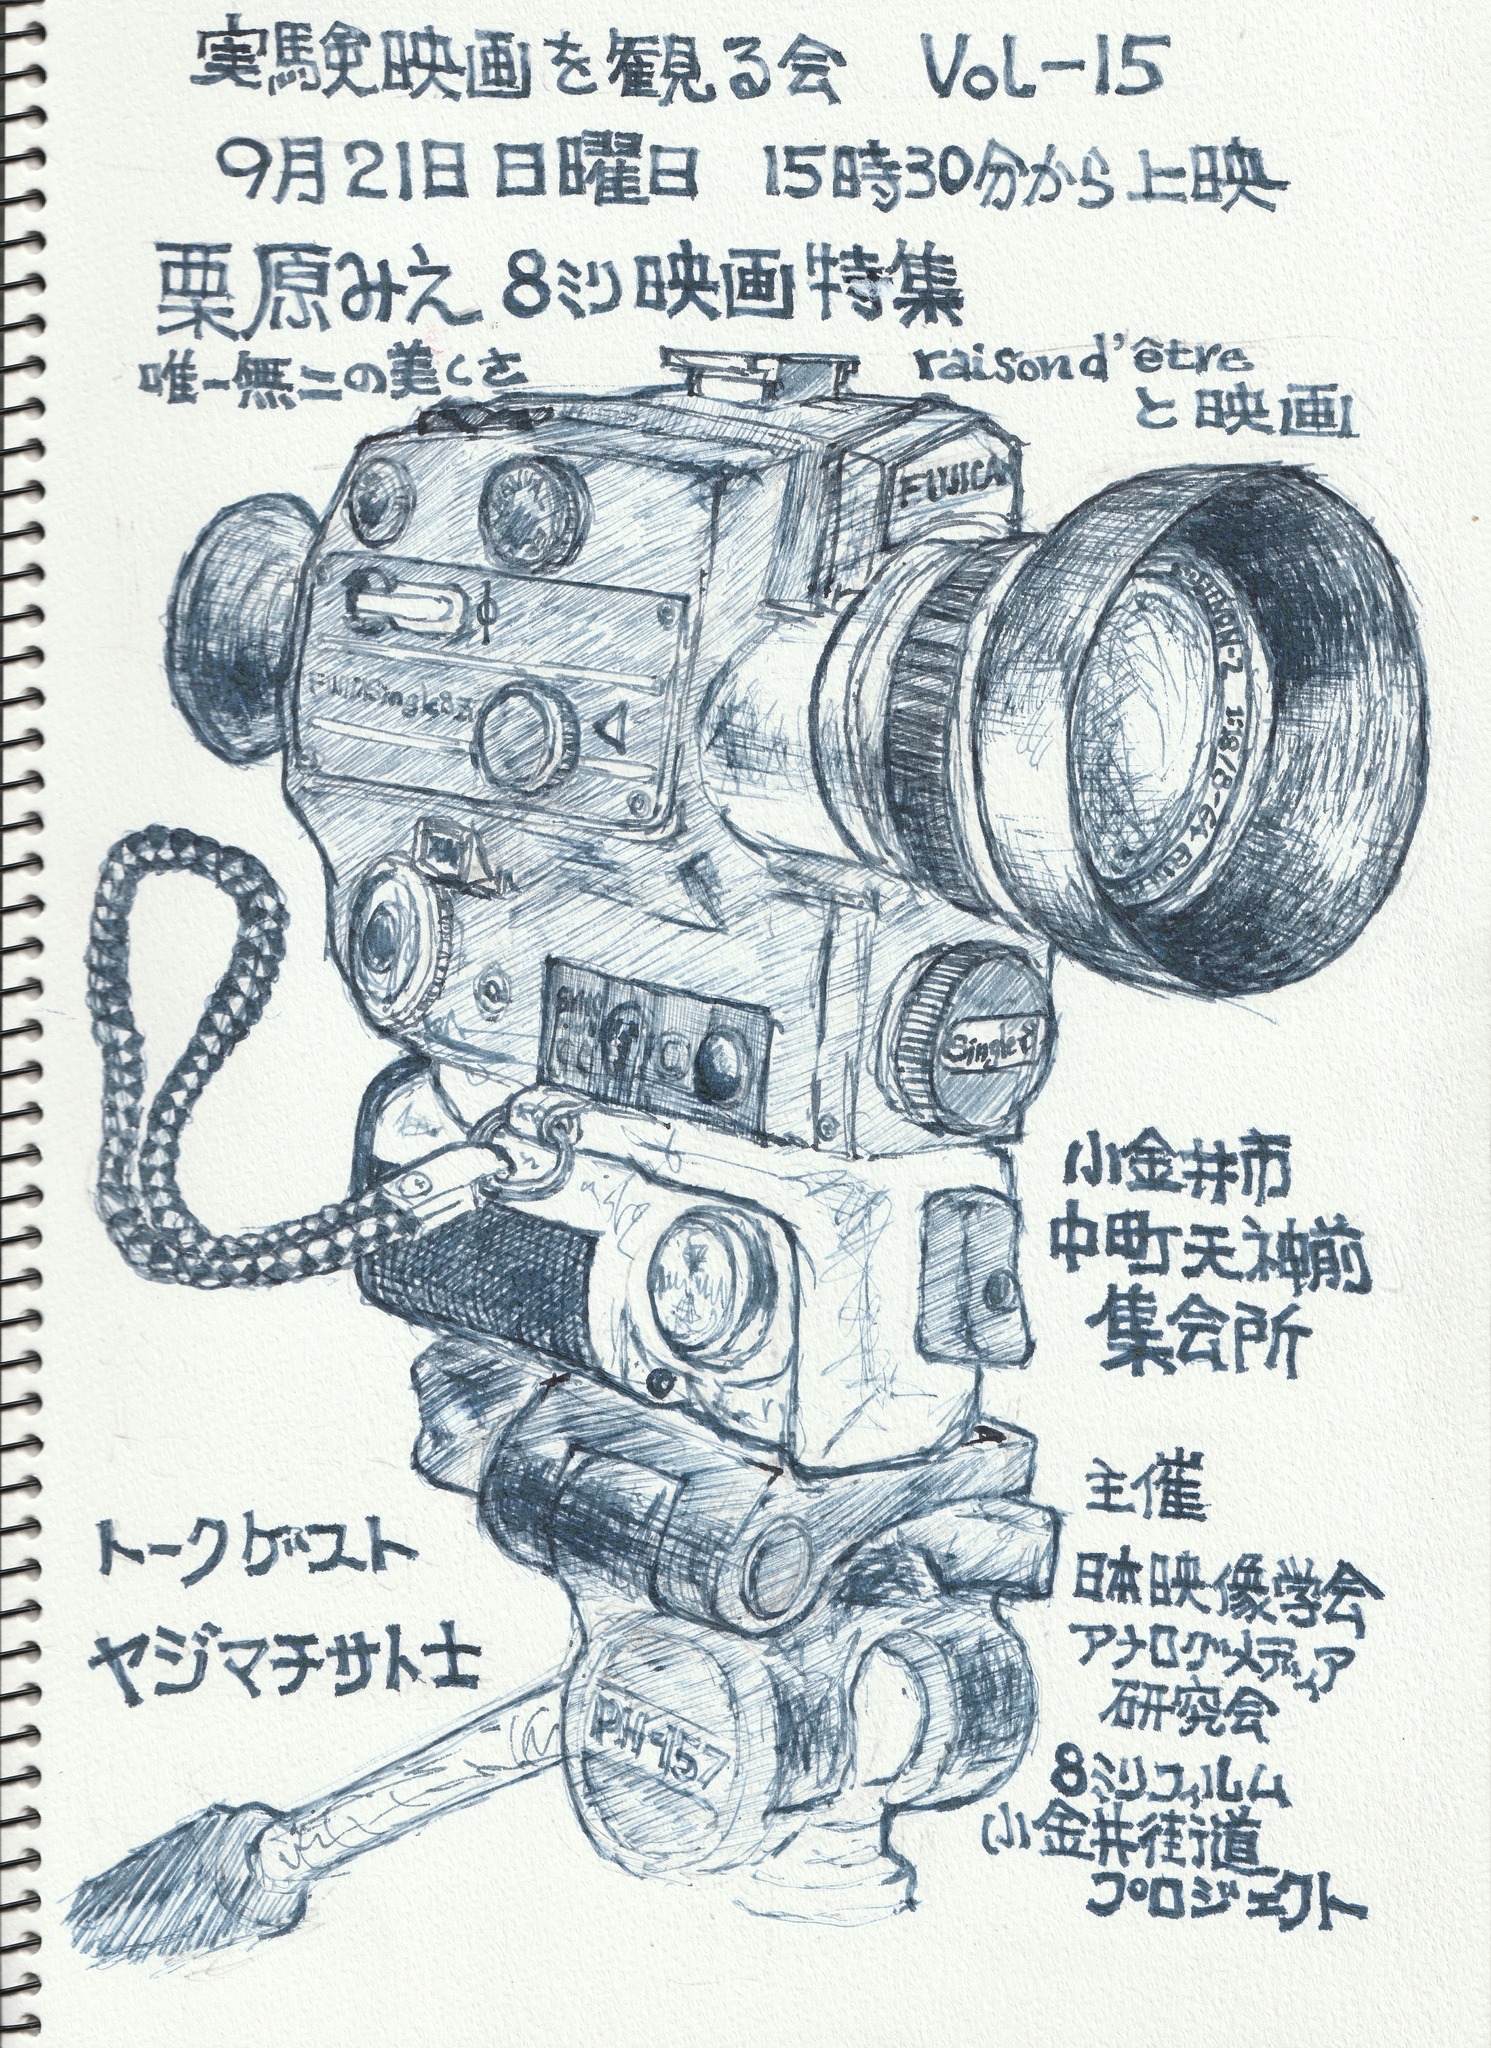 実験映画を観る会 Vol-15
9月21日日曜日 15時30分から上映
栗原みえ 8ミリ映画特集
唯一無二の美しさ
raison d'être
と映画
FUJICA
Single8
小金井市
中町天神前
集会所
主催
日本映像学会
アナログメディア
研究会
8ミリフィルム
小金井街道
プロジェクト
トークゲスト
ヤジマチサト士
PH-157